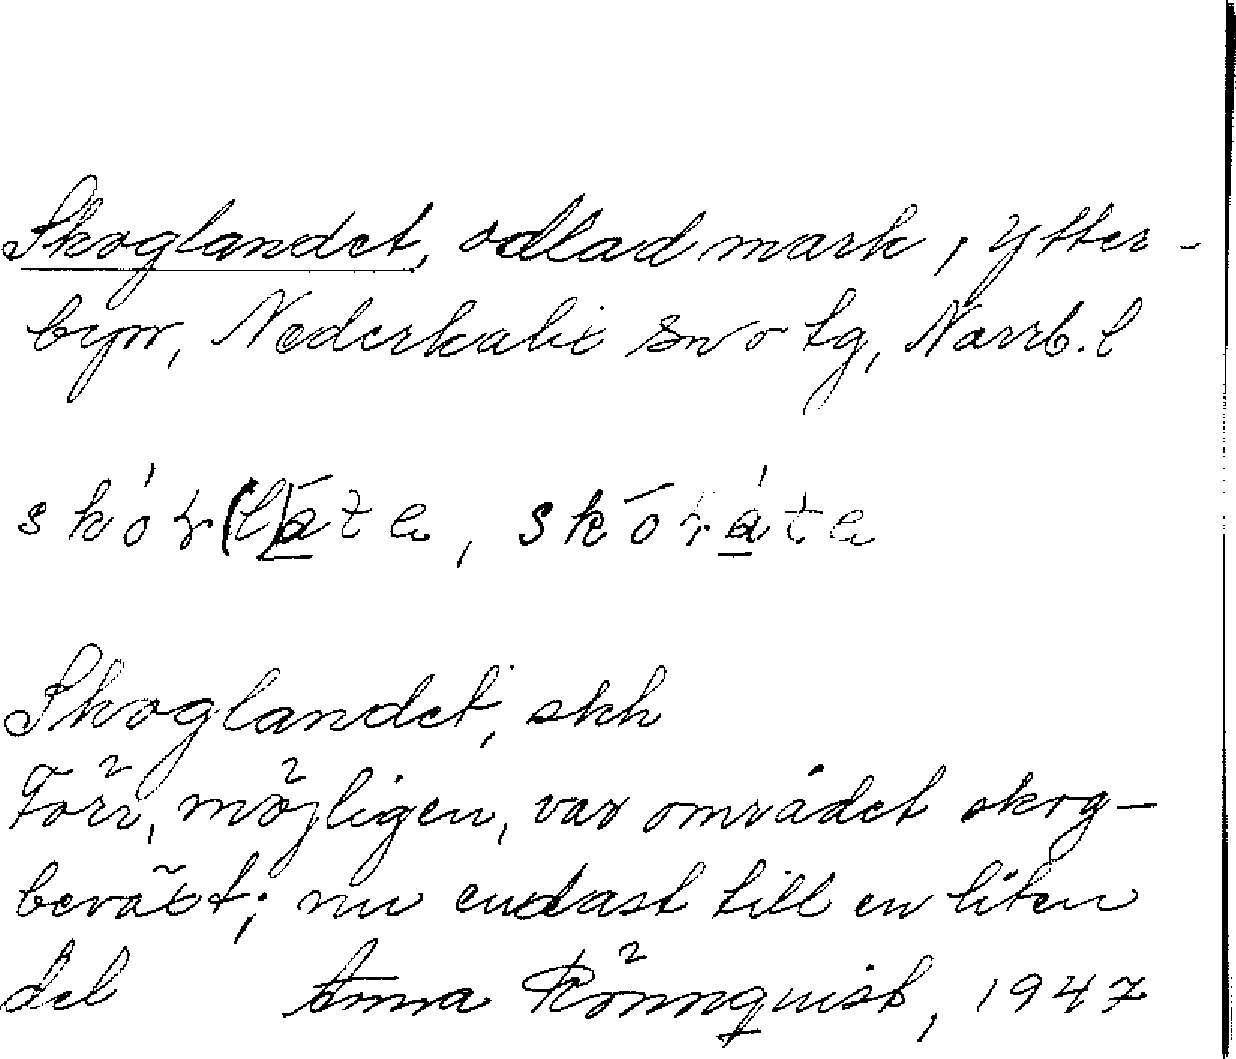 Skoglandet, odlad mark, Ytter-
byn, Nederkalix sn o tg, Norrb. l
Skoglandet, skh
Förr, möjligen, var området skog-
beväxt; nu endast till en liten
del Anna Rönnquist, 1947